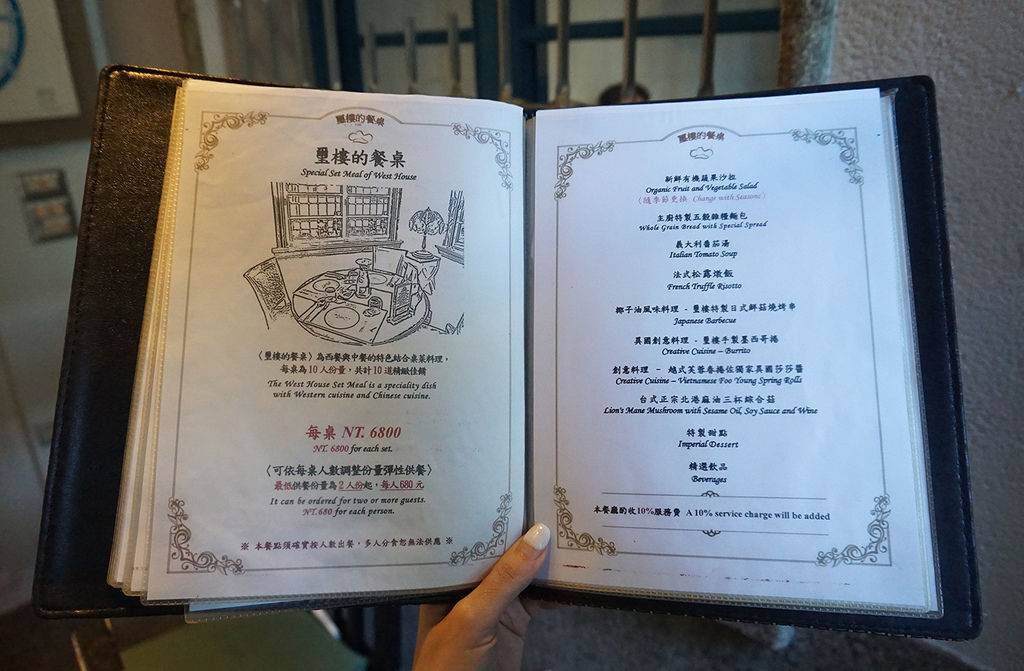 璽樓的餐桌
璽樓的餐桌
Special Set Meal of West House
〈璽樓的餐桌〉為西餐與中餐的特色結合桌菜料理，
每桌為10人份量，共計10道精緻佳餚
The West House Set Meal is a speciality dish
with Western cuisine and Chinese cuisine.
每桌 NT. 6800
NT. 6800 for each set.
〈可依每桌人數調整份量彈性供餐〉
最低供餐份量為2人份起，每人680元
It can be ordered for two or more guests.
NT.680 for each person.
※ 本餐點須確實按人數出餐，多人分食恕無法供應 ※
璽樓的餐桌
新鮮有機蔬果沙拉
Organic Fruit and Vegetable Salad
（隨季節更換 Change with Seasons）
主廚特製五穀雜糧麵包
Whole Grain Bread with Special Spread
義大利番茄湯
Italian Tomato Soup
法式松露燉飯
French Truffle Risotto
椰子油風味料理 - 璽樓特製日式鮮菇燒烤串
Japanese Barbecue
異國創意料理 - 璽樓手製墨西哥捲
Creative Cuisine – Burrito
創意料理 – 越式芙蓉春捲佐獨家異國莎莎醬
Creative Cuisine – Vietnamese Foo Young Spring Rolls
台式正宗北港麻油三杯綜合菇
Lion's Mane Mushroom with Sesame Oil, Soy Sauce and Wine
特製甜點
Imperial Dessert
精選飲品
Beverages
本餐廳酌收10%服務費 A 10% service charge will be added